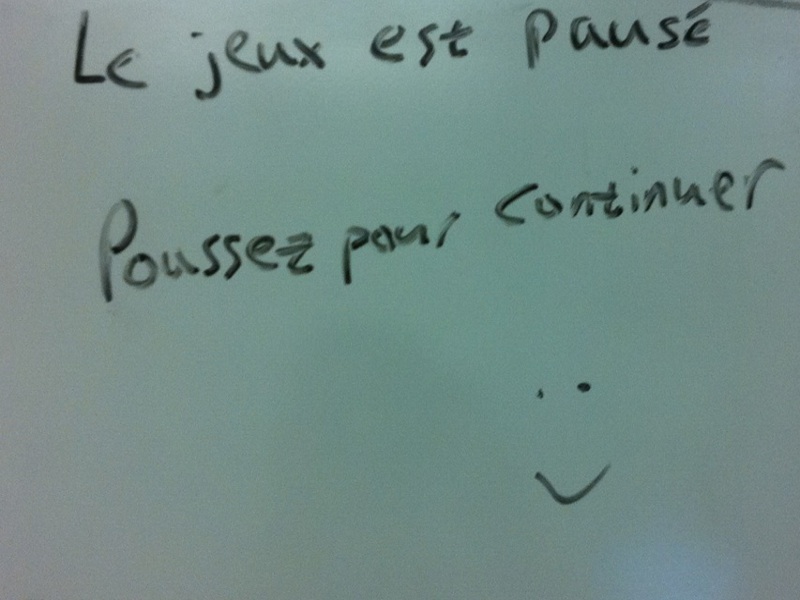 Le jeux est pausé
Poussez pour continuer